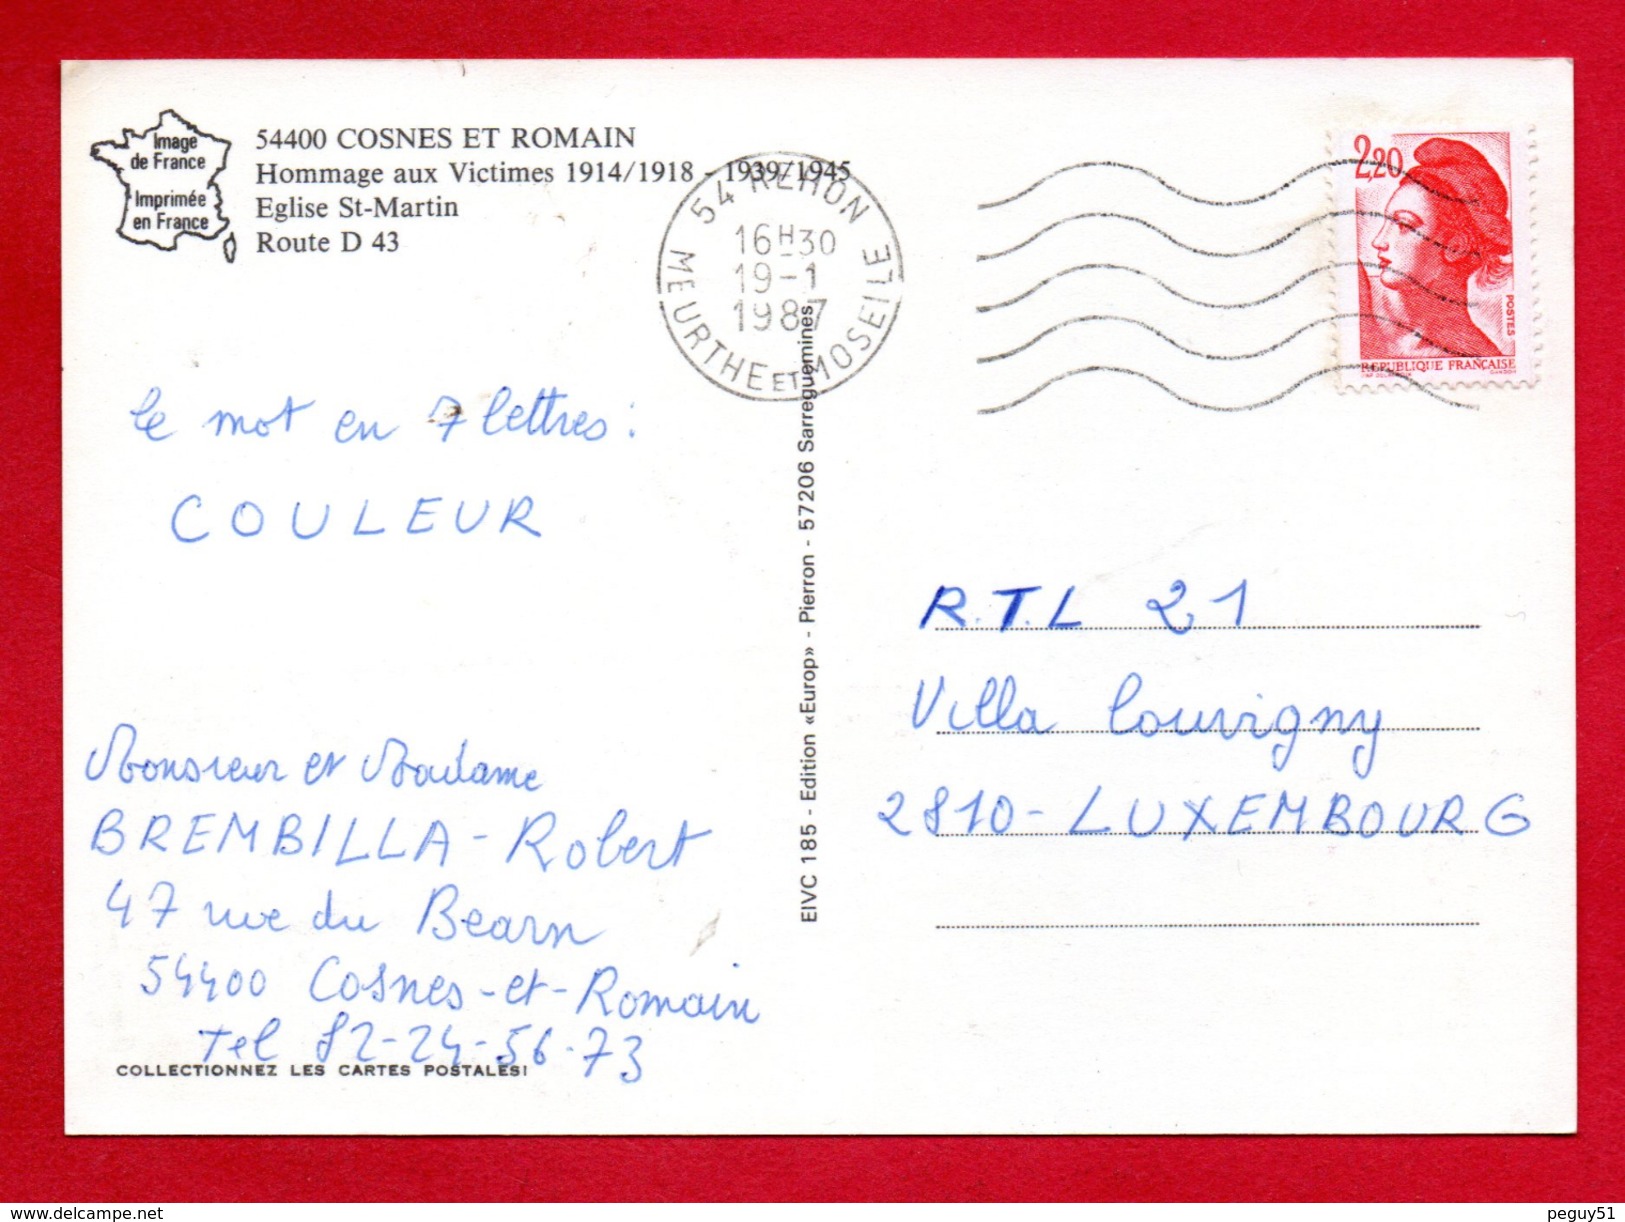 Image
de France
Imprimée
en France
54400 COSNES ET ROMAIN
Hommage aux Victimes 1914/1918 - 1939/1945
Eglise St-Martin
Route D 43
54 REHON
16H30
19-1
1987
MEURTHE ET MOSELLE
2,20
POSTES
REPUBLIQUE FRANÇAISE
le mot en 7 lettres :
COULEUR
Monsieur et Madame
BREMBILLA - Robert
47 rue du Bearn
54400 Cosnes-et-Romain
Tel 82-24-56-73
COLLECTIONNEZ LES CARTES POSTALES!
EIVC 185 - Edition «Europ» - Pierron - 57206 Sarreguemines
R.T.L 21
Villa Louvigny
2810 - LUXEMBOURG
www.delcampe.net
peguy51